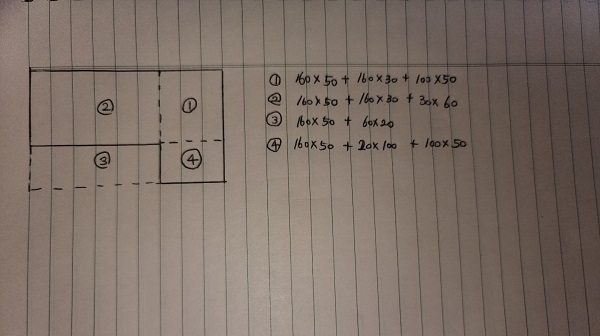 ② ①
③ ④
① 160 x 50 + 160 x 30 + 100 x 50
② 160 x 50 + 160 x 30 + 30 x 60
③ 160 x 50 + 60 x 20
④ 160 x 50 + 20 x 100 + 100 x 50